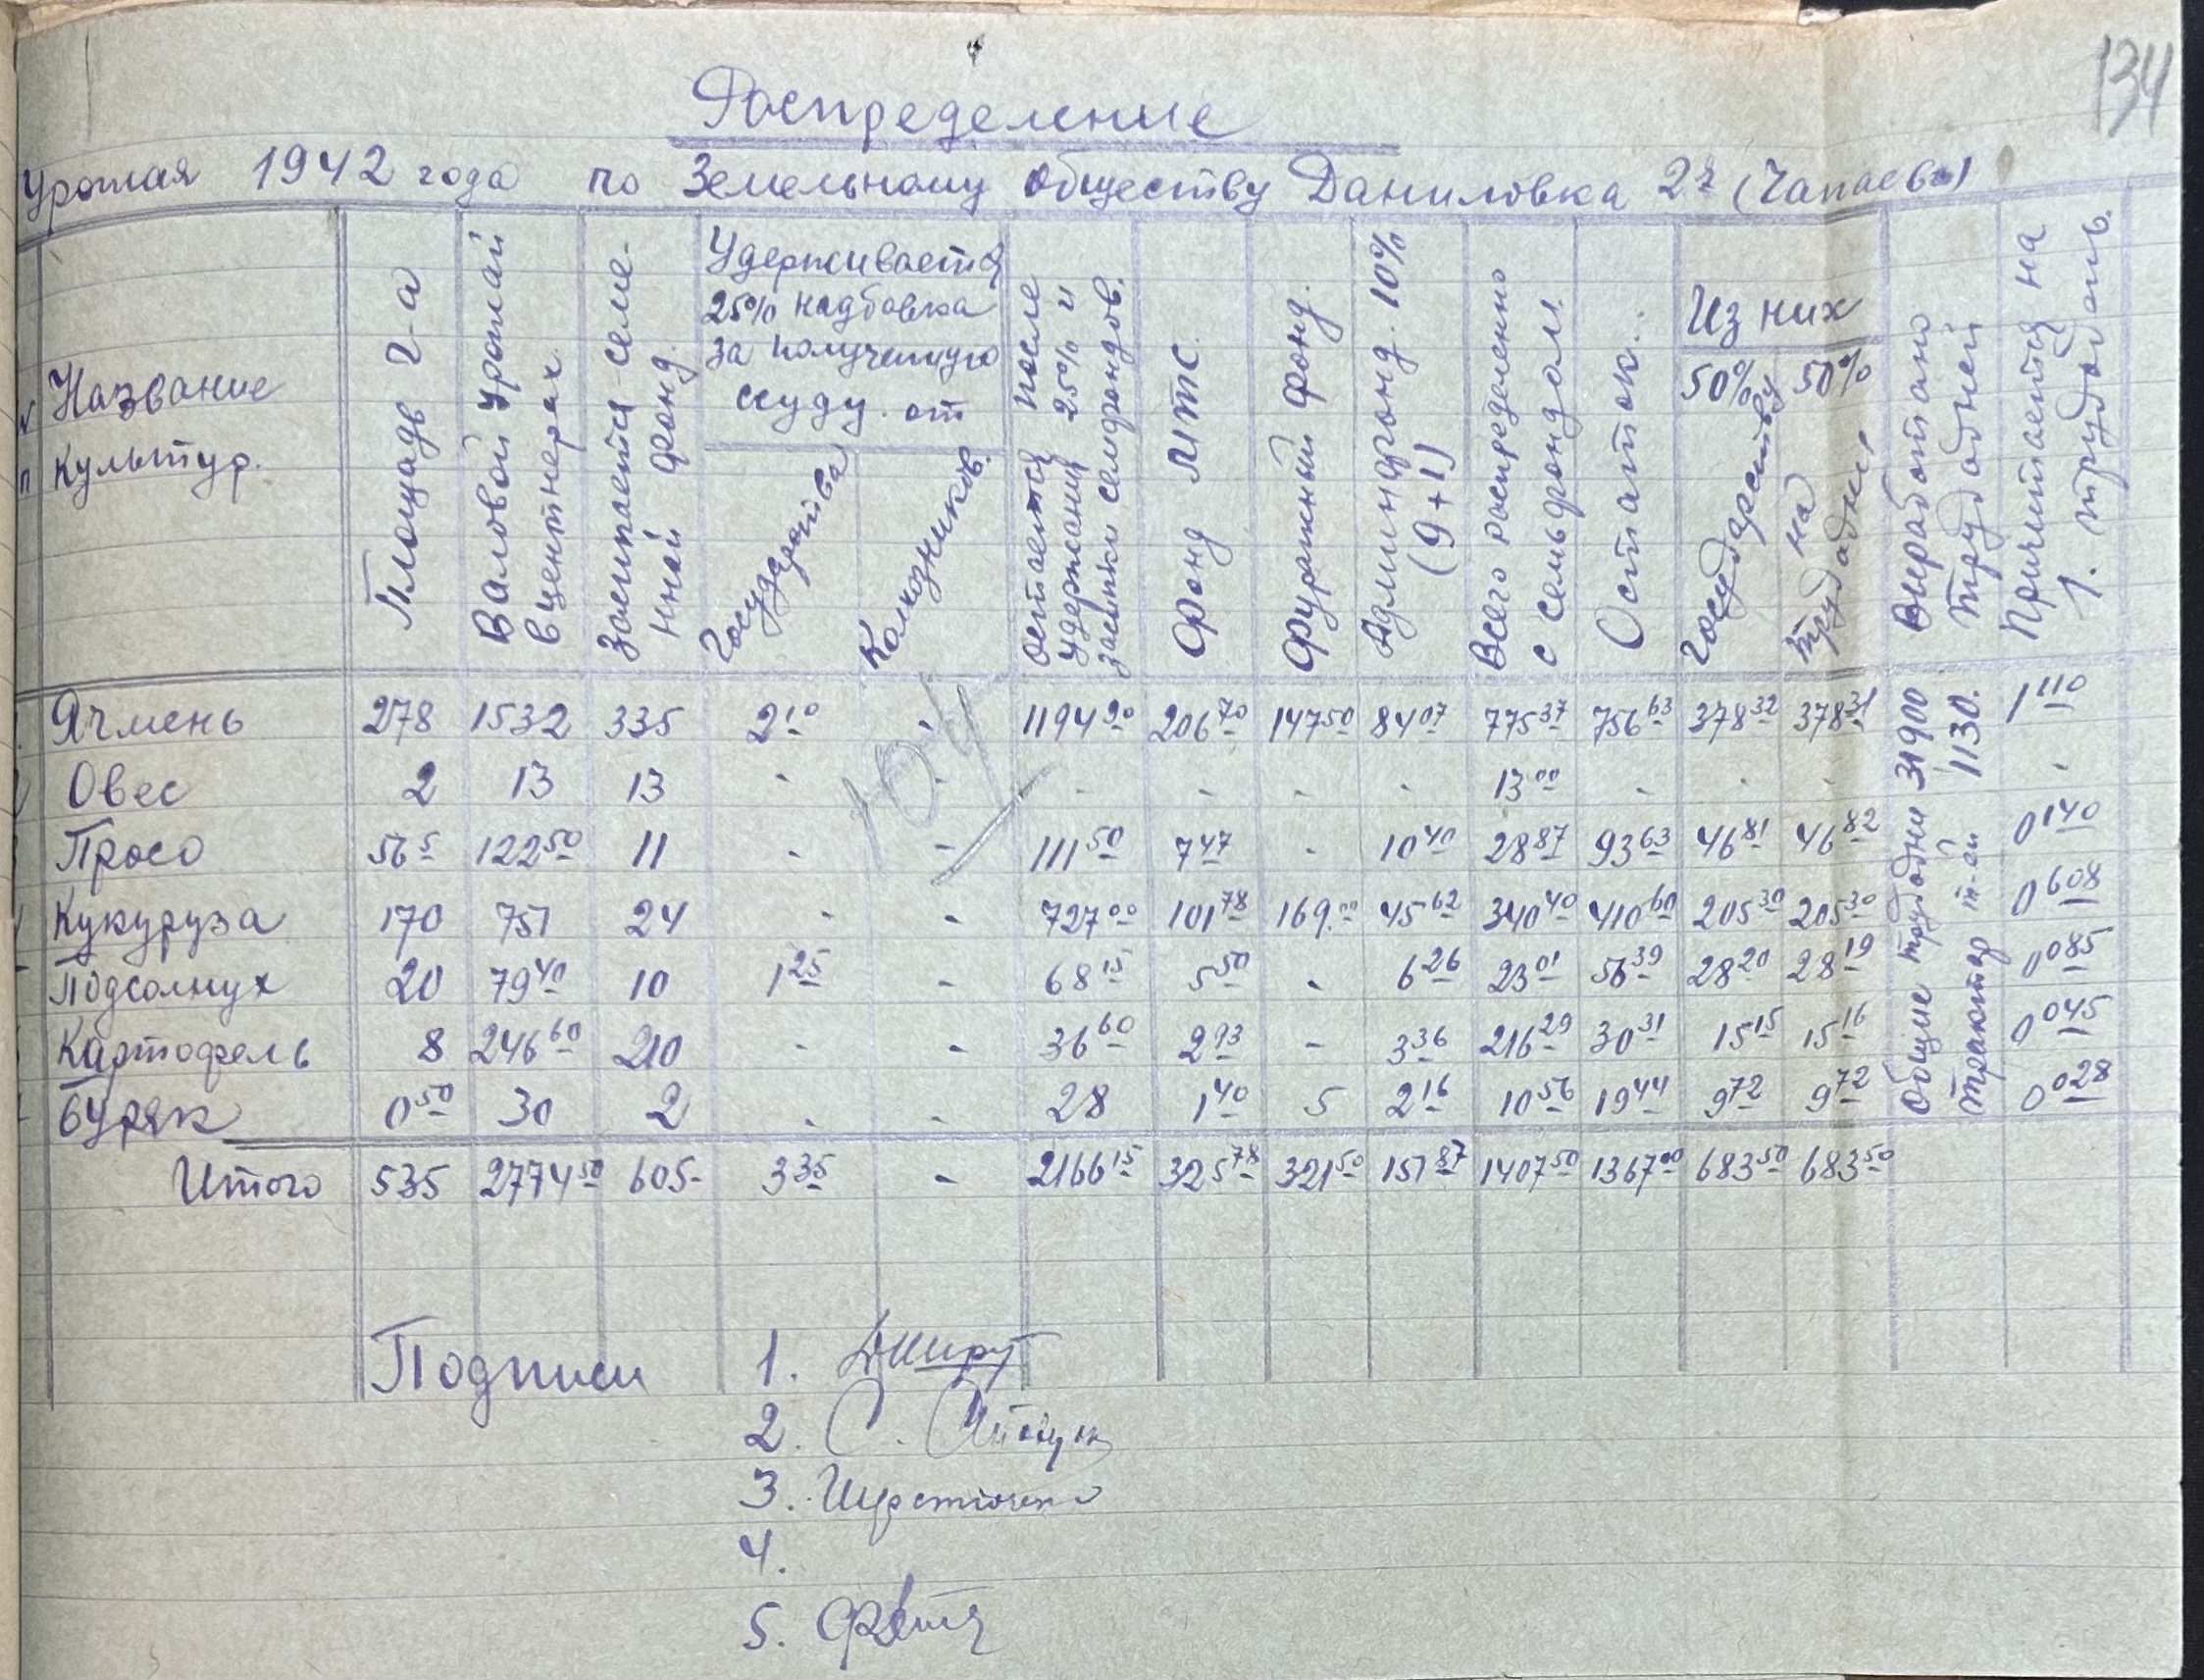 134
Распределение
Урожая 1942 года по Земельному обществу Даниловка 2я (Чапаевы)
№ п
Название культур.
Площадь г-а
Валовой урожай в центнерах
Засыпается семенной фонд.
Удерживается 25% надбавка за полученную ссуду от
Государства
Колхозников.
Остается после удержания 25% и засыпки семфондов.
Фонд МТС.
Фуражный фонд.
Админфонд. 10% (9+1)
Всего распределенно с семьфондом.
Остаток.
Из них
50% Государству
50% на трудодни
Выработано трудодней
Причитается на 1. трудодень.
Ячмень 278 1532 335 2 10 - 1194 90 206 70 147 50 84 07 775 37 756 63 378 32 378 31 1 110
Овес 2 13 13 - - - - - - 13 00 - - - -
Просо 56 5 122 50 11 - - 111 50 7 47 - 10 40 28 87 93 63 46 81 46 82 0 140
Кукуруза 170 751 24 - - 727 00 101 78 169.00 45 62 340 40 410 60 205 30 205 30 0 608
Подсолнух 20 79 40 10 1 25 - 68 15 5 50 - 6 26 23 01 56 39 28 20 28 19 0 085
Картофель 8 246 60 210 - - 36 60 2 93 - 3 36 216 29 30 31 15 15 15 16 0 045
Буряк 0 50 30 2 - - 28 1 40 5 2 16 10 56 19 44 9 72 9 72 0 028
Общие трудодни 31900
трактор т-ей 1130.
Итого 535 2774 50 605- 3 35 - 2166 15 325 78 321 50 151 87 1407 50 1367 00 683 50 683 50
Подписи
1.
2. С.
3.
4.
5.